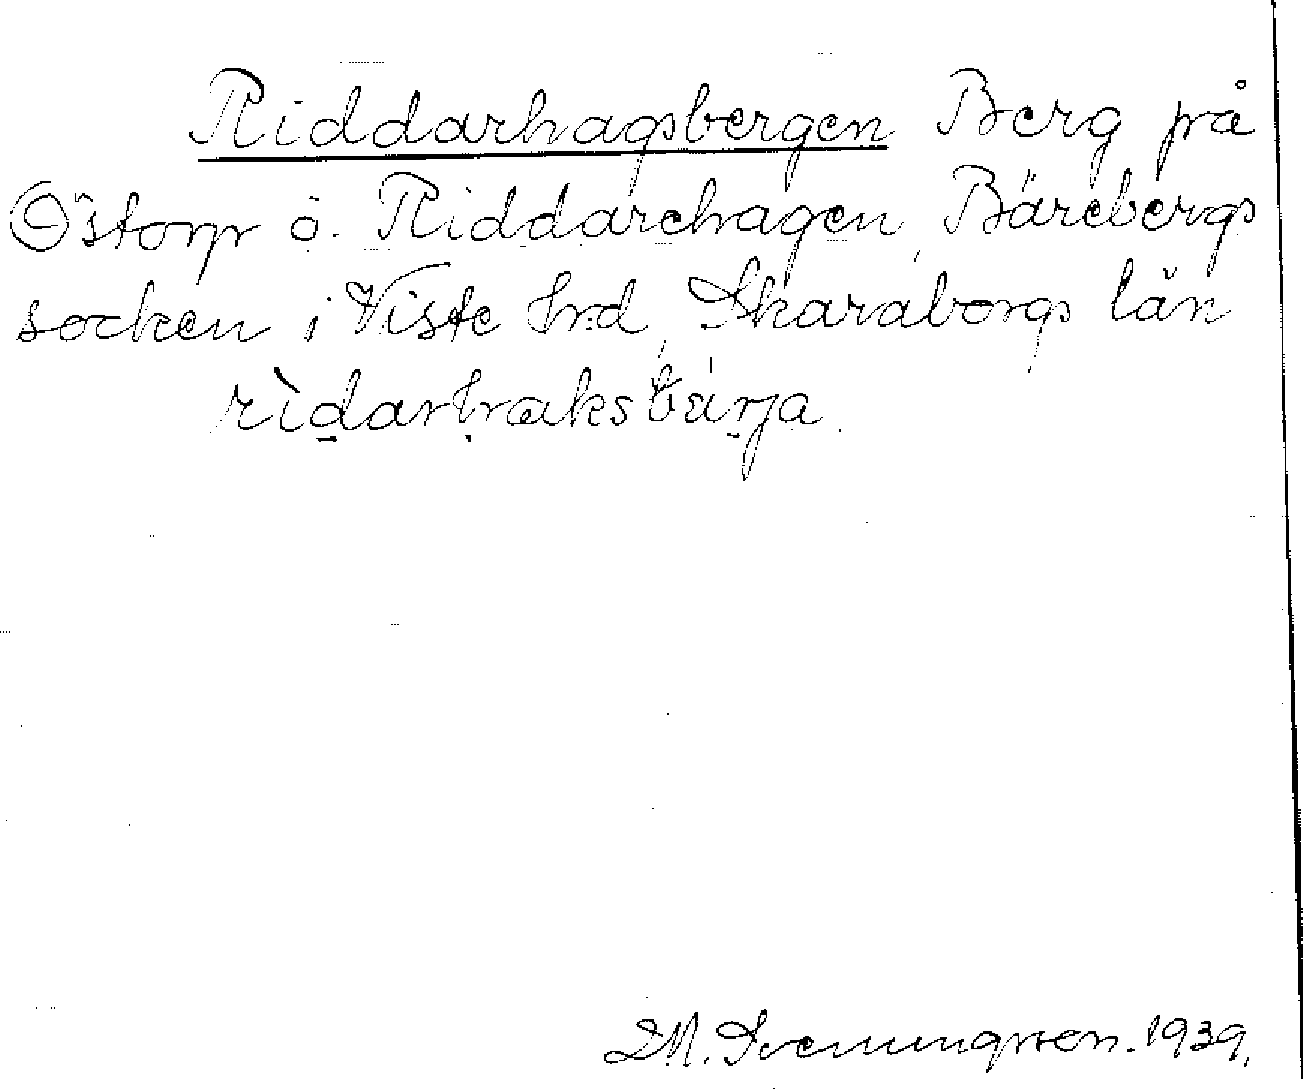 Riddarhagsbergen Berg på
Östorp ö. Riddarehagen, Bärebergs
socken i Viste hrd, Skaraborgs län
rìdarhaksbárja.
M. Svenungsson. 1939.